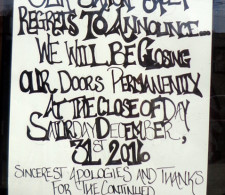 REGRETS TO ANNOUNCE...
WE WILL BE CLOSING
OUR DOORS PERMANENTLY
AT THE CLOSE OF DAY
SATURDAY DECEMBER,
31ST 2016
SINCEREST APOLOGIES AND THANKS
FOR THE CONTINUED